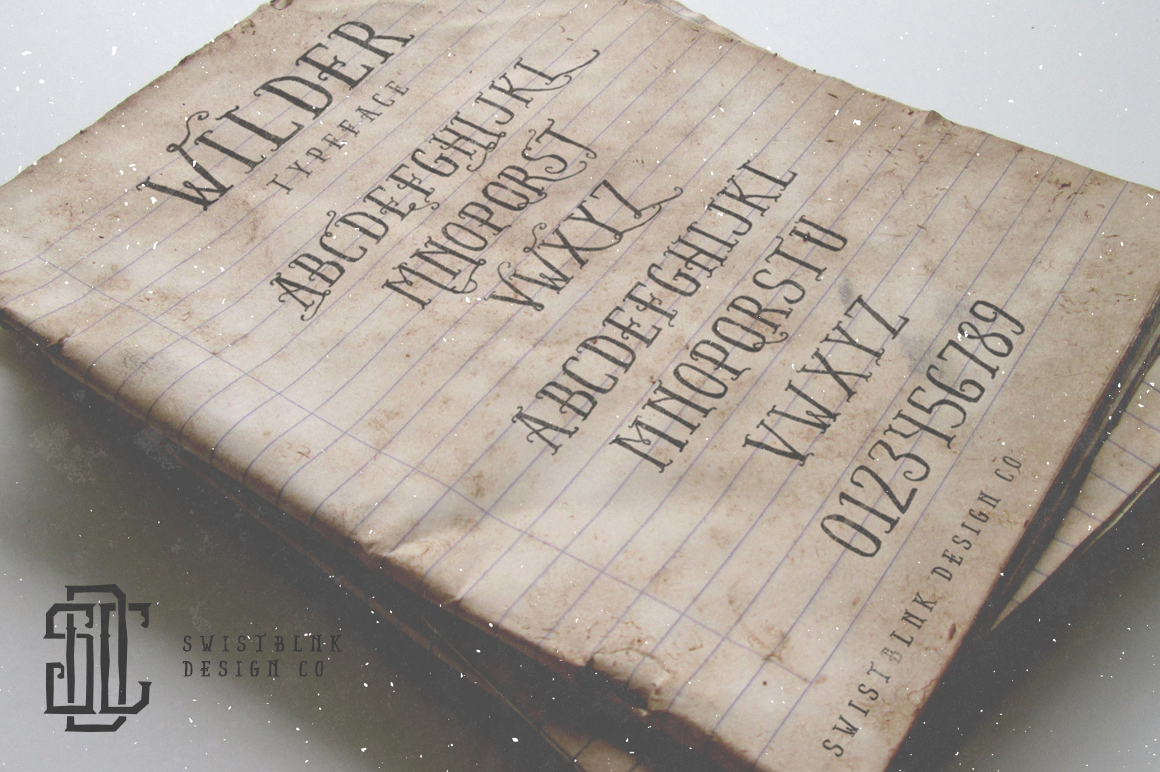 WILDER
TYPEFACE
ABCDEFGHIJKL
MNOPQRST
VWXYZ
ABCDEFGHIJKL
MNOPQRSTU
VWXYZ
0123456789
SWISTBLNK DESIGN CO
SDC
SWISTBLNK
DESIGN CO